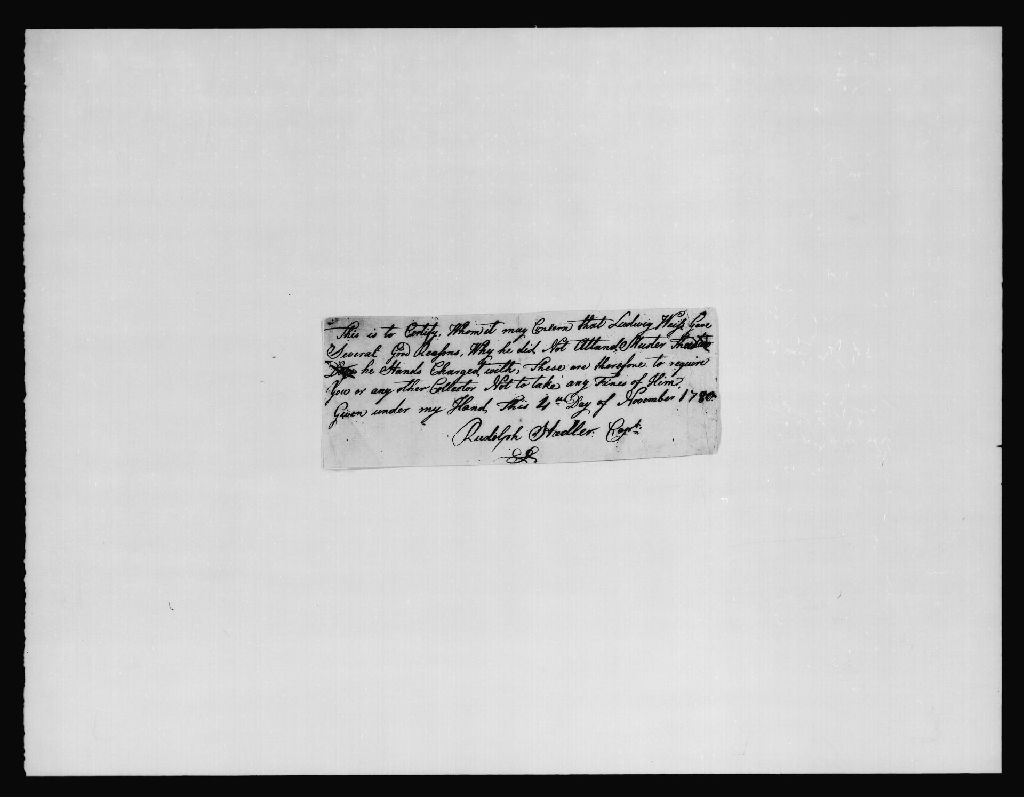 This is to Certify, Whom it may Consern that Ludwig Weiss Gave
Several Good Reasons, Why he did Not Attand Muster
he Stands Charged with, These are therefore to require
You or any other Collector Not to take any Fines of Him,
Given under my Hand, This 4th Day of November 1780
Rudolph Stadler Capt.